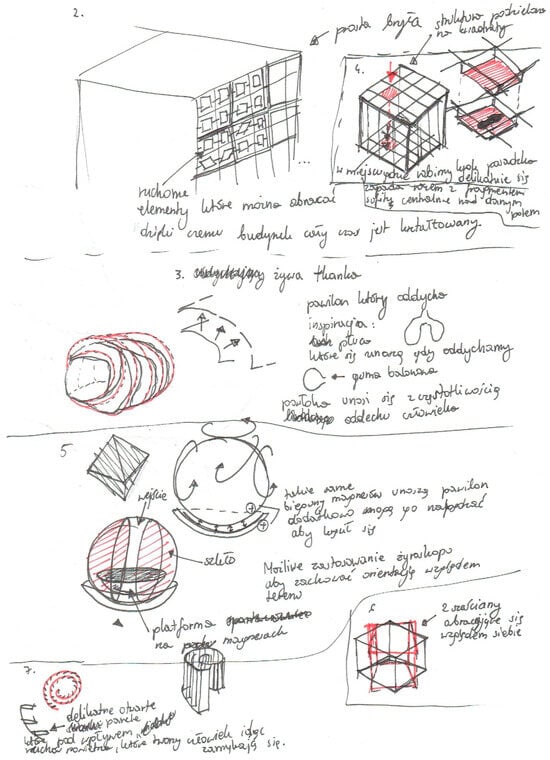 2.
prosta bryła
ruchome
elementy które można obracać
dzięki czemu budynek cały czas jest kształtowany
...
struktura podzielona
na kwadraty
4.
w miejscu gdzie robimy krok posadzka
delikatnie się
zapada razem z fragmentem
sufitu centralnie nad danym
polem
3. żywa tkanka
pawilon który oddycha
inspiracja:
płuca
które się unoszą gdy oddychamy
guma balonowa
powłoka unosi się z częstotliwością
oddechu człowieka
5
wejście
szkło
platforma
na magnesach
takie same
bieguny magnesów unoszą pawilon
dodatkowo mogą go napędzać
aby kręcił się
Możliwe zastosowanie żyroskopu
aby zachować orientację względem
terenu
6
2 sześciany
obracające się
względem siebie
7.
delikatne otwarte
panele
które pod wpływem
ruchu powietrza, które tworzy człowiek idąc
zamykają się.